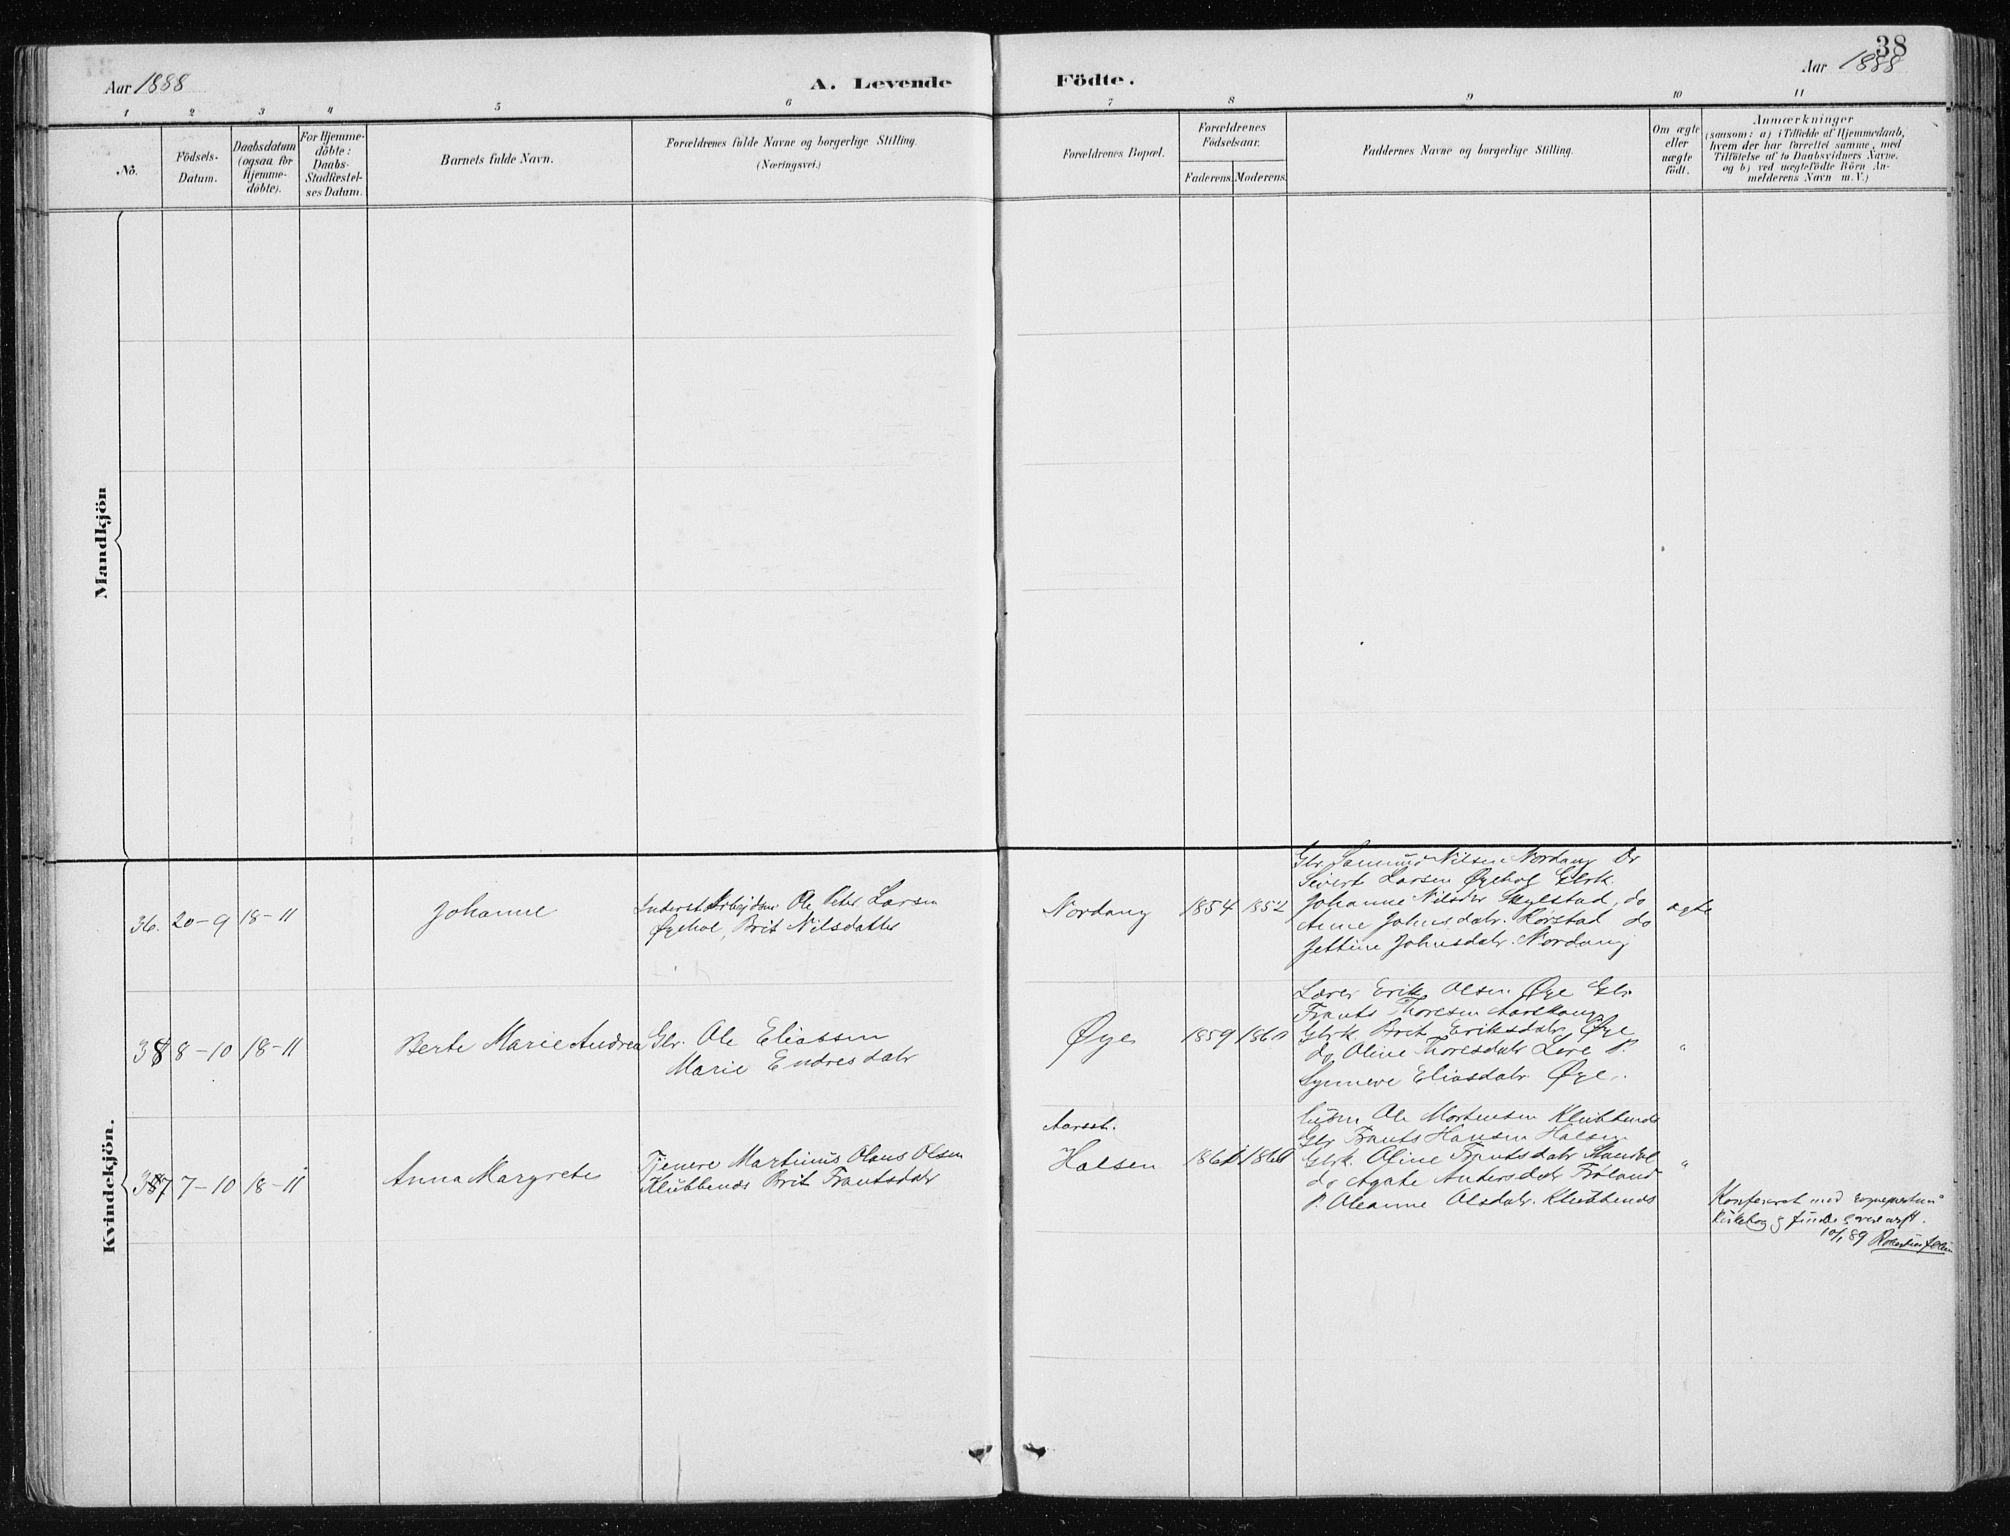 38
Aar 1888
A. Levende
Födte.
Aar 1888
1 2 3 4 5 6 7 8 9 10 11
No.
Födsels-
Datum.
Daabsdatum
(ogsaa for
Hjemme-
döbte).
For Hjemme-
döbte:
Daabs-
Stadfæstel-
ses Datum.
Barnets fulde Navn.
Forældrenes fulde Navne og borgerlige Stilling.
(Næringsvei.)
Forældrenes Bopæl.
Forældrenes
Födselsaar.
Faderens. Moderens.
Faddernes Navne og borgerlige Stilling.
Om ægte
eller
uægte
födt.
Anmærkninger
(saasom: a) i Tilfælde af Hjemmedaab,
hvem der har forrettet samme, med
Tilföielse af to Daabsvidners Navne.
og b) ved uægtefödte Börn An-
melderens Navn m. V.)
Mandkjön
Kvindekjön.
36. 20-9 18-11
Johanne
Inderst Arbejdsm. Ole Peter Larsen
Øyehol, Brit Nilsdatter
Nordang
1854 1852
Gbr Samund Nilsen Nordang Do
Sivert Larsen Øyehol Gbrk.
Johanne Nilsdr Skylstad, do
Anne Johnsdatr. Rørstad do
Jettine Johnsdatr. Nordang
ægte
38 8-10 18-11
Berte Marie Andrea
Gbr. Ole Eliassen
Marie Endresdatr
Øye
1859 1860
Lærer Erik Olsen Øye Gbr.
Frants Thoresen Aarskoug
Gbrk Brit Eriksdatr Øye
do Oline Thoresdatr Leve P.
Synneve Eliasdatr Øye.
"
37 7-10 18-11
Anna Margrete
Tjenere Martinus Olaus Olsen
Klubbenes Brit Frantsdatr
Aarsst.
Halsen
1861 1860
Ole Mortensen Klubbenes
Gbr Frants Hansen Halsen
Gbrk. Oline Frantsdatr Standal
do Agate Andersdatr Frøland
P. Oleanne Olsdatr. Klubbenes
"
Konfereret med Sogneprestens
Kirkebog
10/1 89